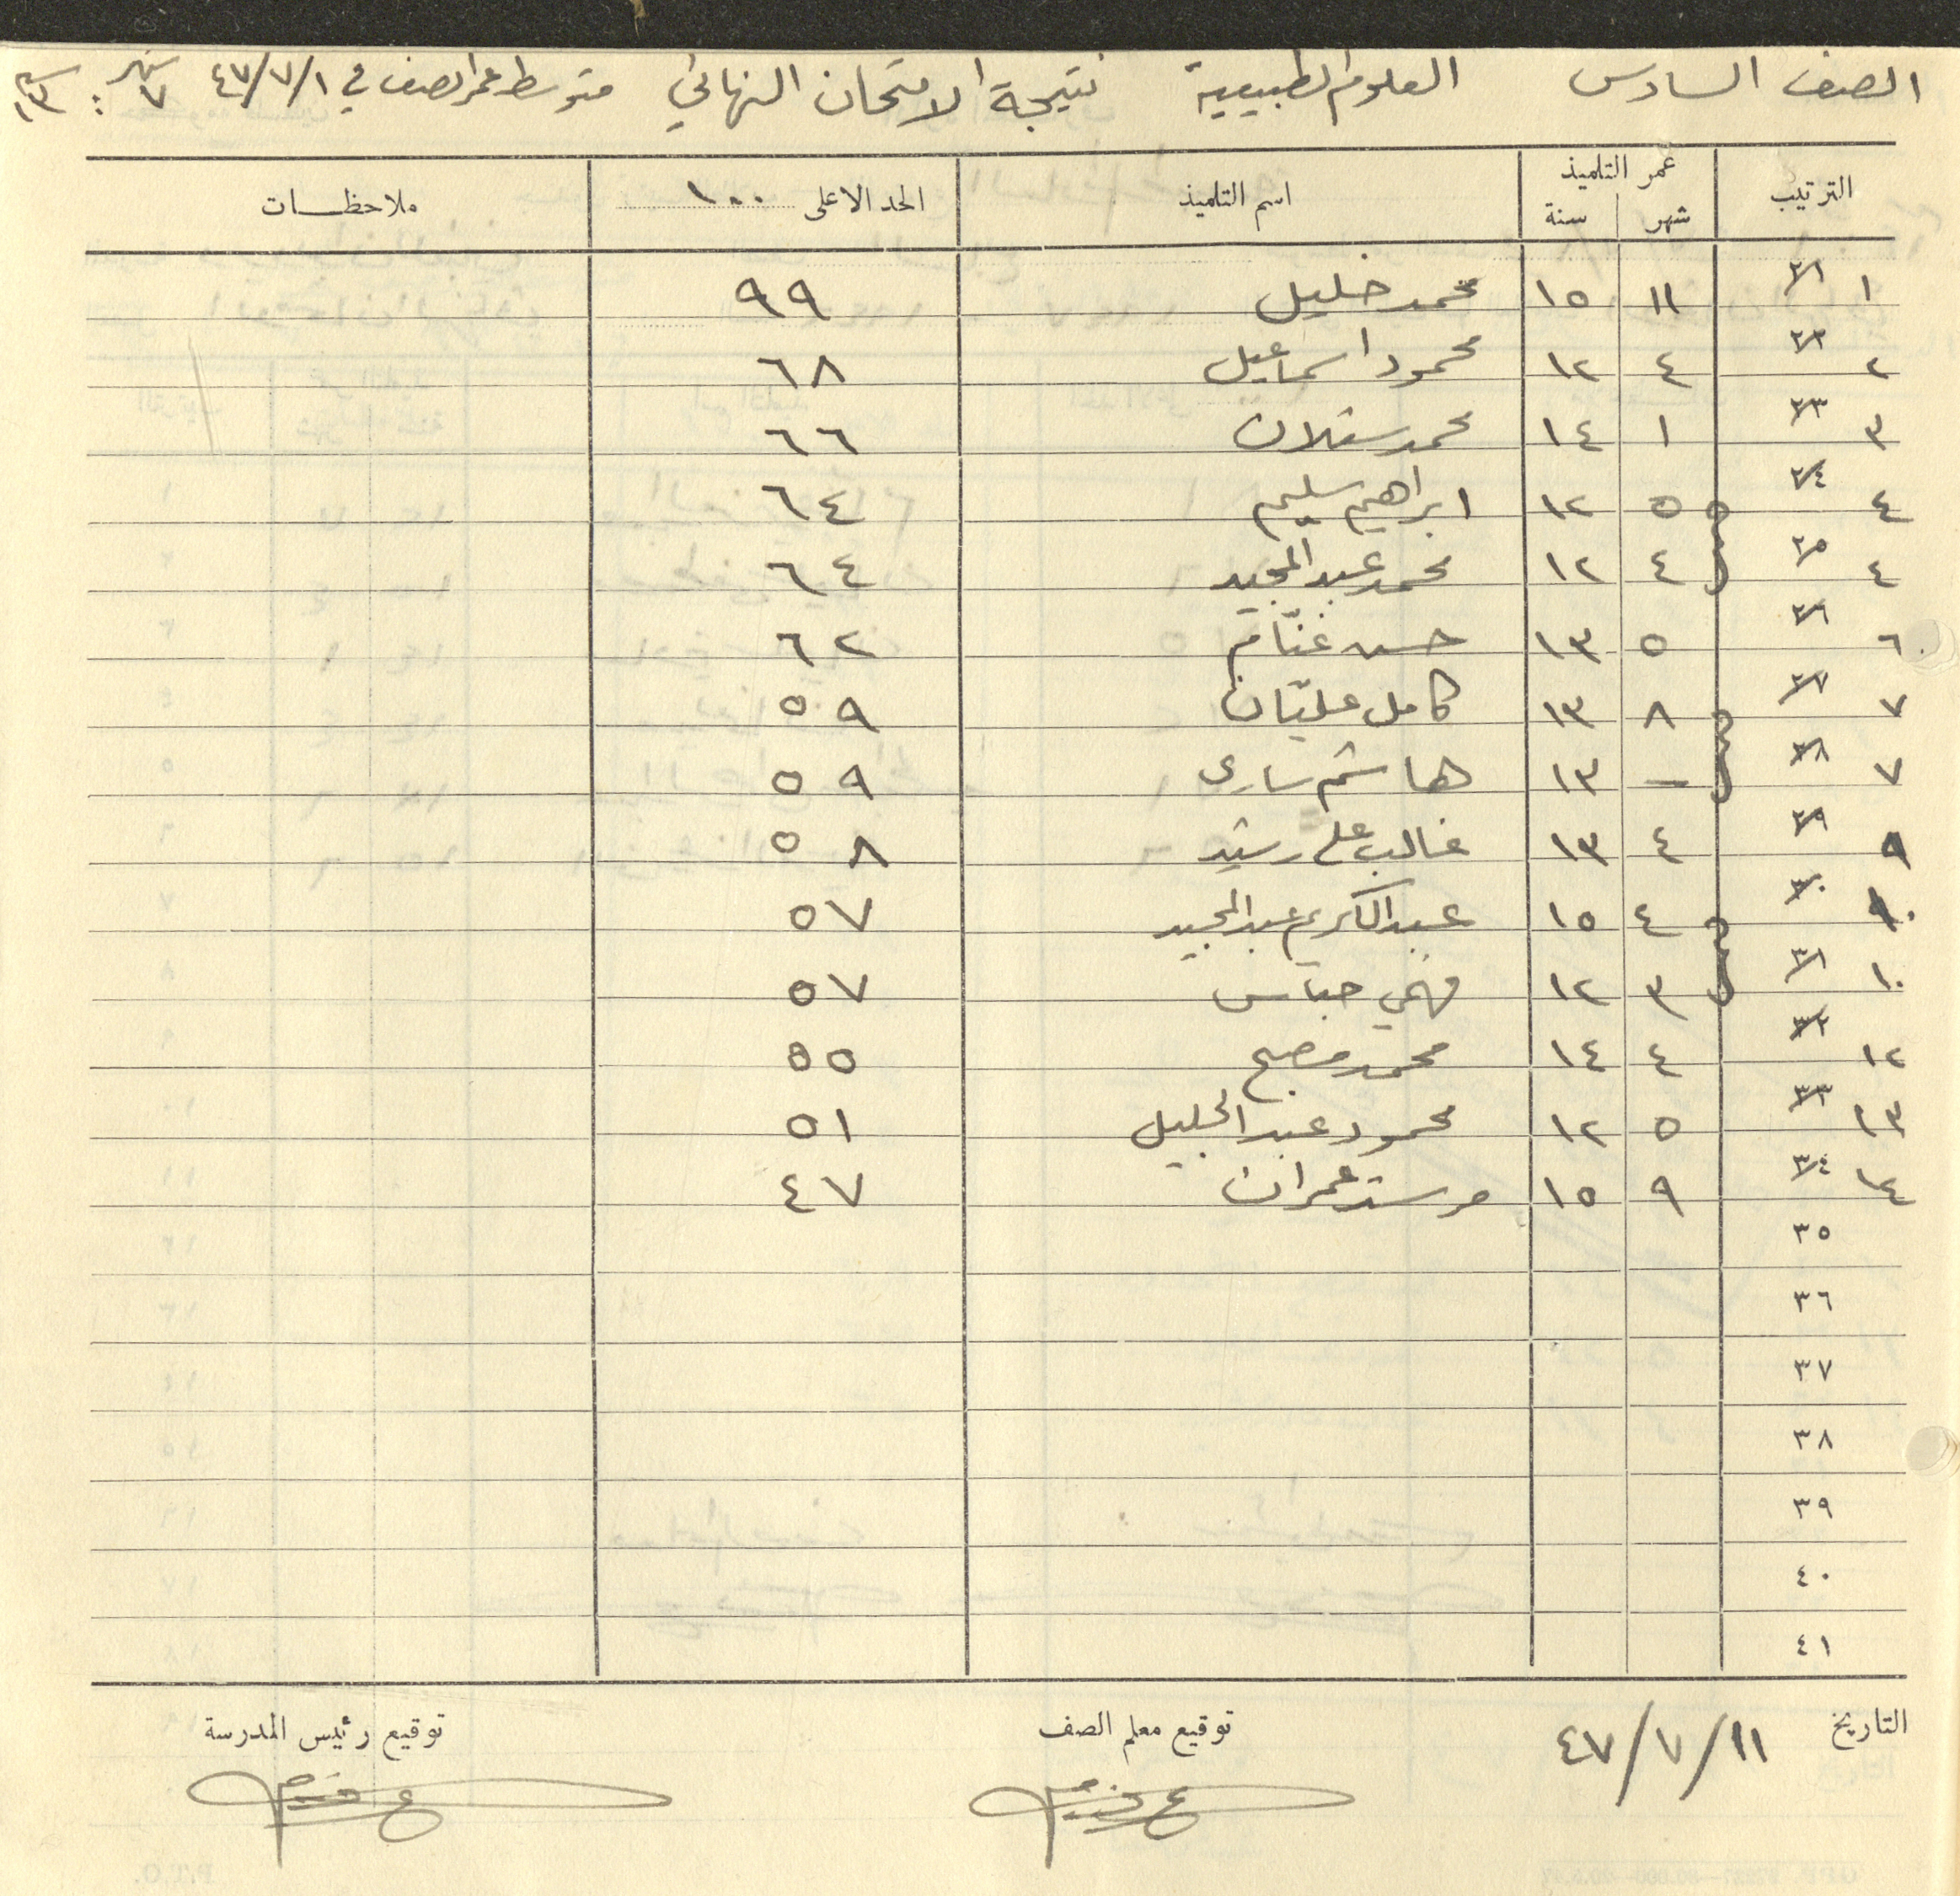 الصف السادس العلوم الطبيعية نتيجة الامتحان النهائي متوسط عمر الصف في ٤٧/٧/١ : شهر ٧ سنة ١٣
الترتيب عمر التلميذ شهر سنة اسم التلميذ الحد الاعلى ١٠٠ ملاحظات
١ ٢١ ١١ ١٥ محمد خليل ٩٩
٢ ٢٢ ٤ ١٢ محمود اسماعيل ٦٨
٣ ٢٣ ١ ١٤ محمد ٦٦
٤ ٢٤ ٥ ١٢ ابراهيم سليم ٦٤
٤ ٢٥ ٤ ١٢ محمد عبد المجيد ٦٤
٦ ٢٦ ٥ ١٣ حسن غنّام ٦٢
٧ ٢٧ ٨ ١٣ كامل عليّان ٥٩
٧ ٢٨ – ١٣ هاشم ساري ٥٩
٩ ٢٩ ٤ ١٣ غالب علي رشيد ٥٨
١٠ ٣٠ ٤ ١٥ عبد الكريم عبد المجيد ٥٧
١٠ ٣١ ٣ ١٢ فهمي ٥٧
١٢ ٣٢ ٤ ١٤ محمد مصبح ٥٥
١٣ ٣٣ ٥ ١٢ محمود عبد الجليل ٥١
١٤ ٣٤ ٩ ١٥ مرشد عمران ٤٧
٣٥
٣٦
٣٧
٣٨
٣٩
٤٠
٤١
التاريخ ٤٧/٧/١١ توقيع معلم الصف توقيع رئيس المدرسة